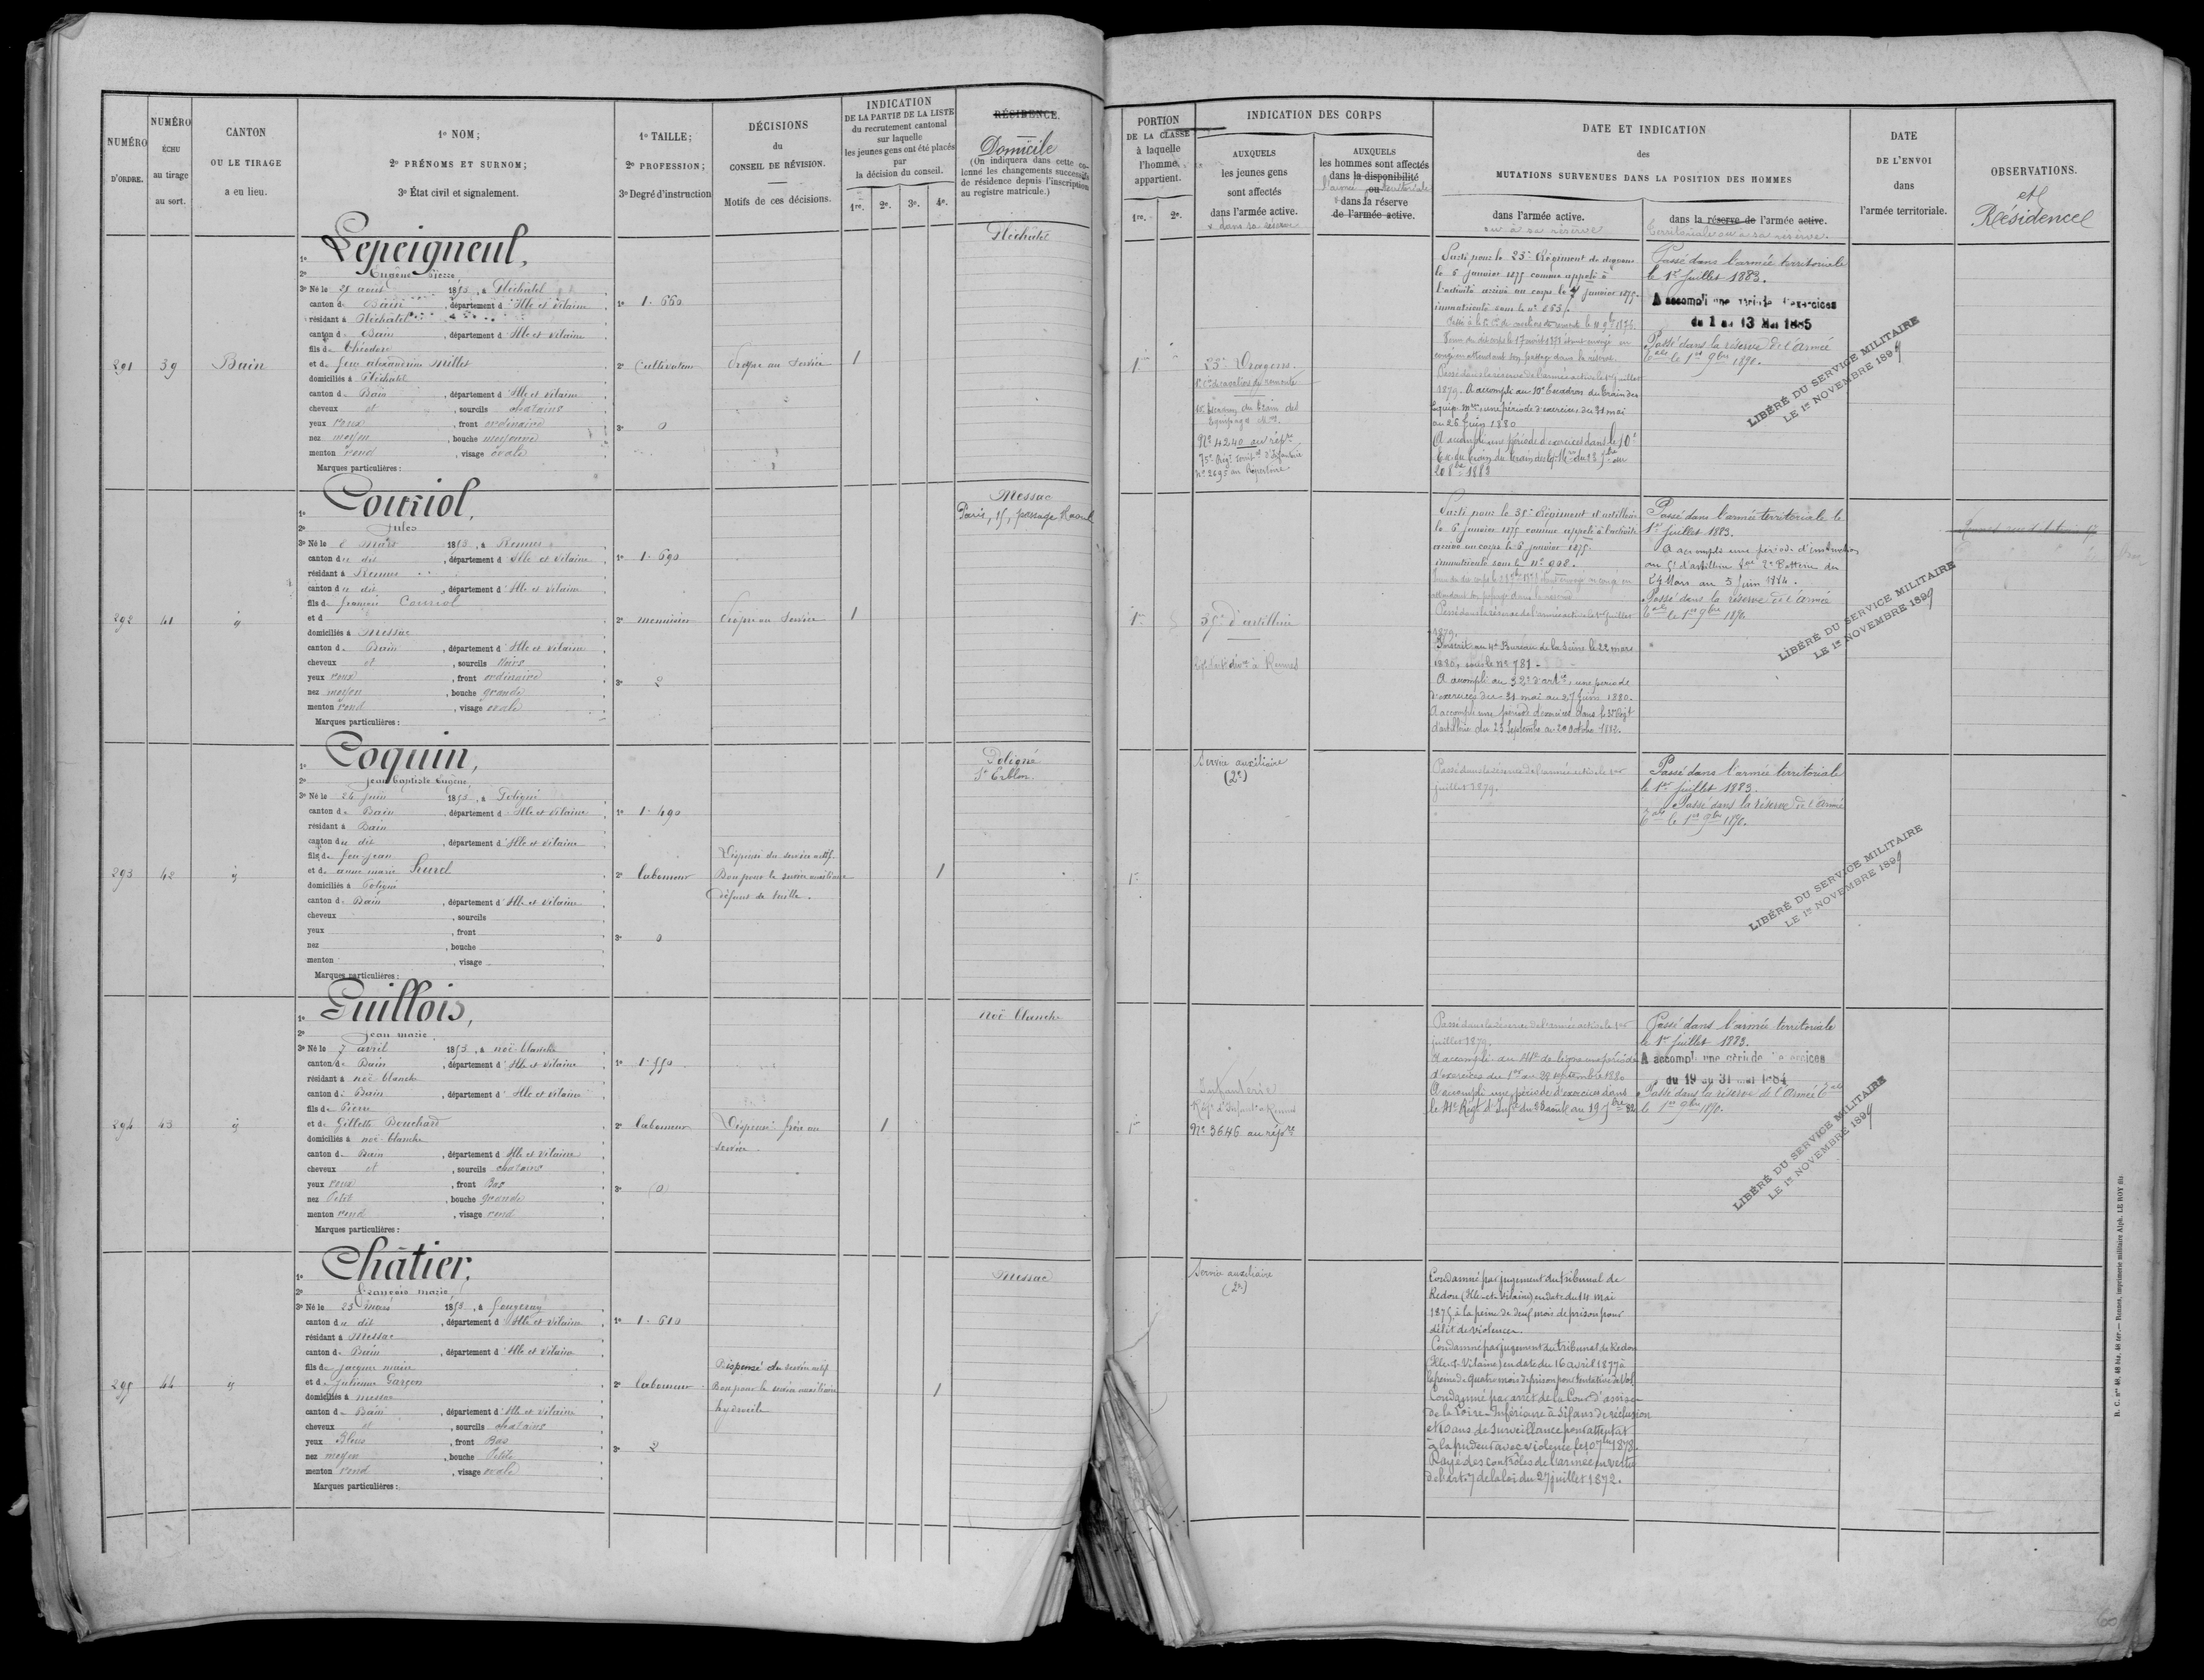 NUMÉRO D'ORDRE.
NUMÉRO ÉCHU au tirage au sort.
CANTON OU LE TIRAGE a eu lieu.
1º NOM;
2º PRÉNOMS ET SURNOM;
3º État civil et signalement.
1º TAILLE;
2º PROFESSION;
3º Degré d'instruction
DÉCISIONS
du
CONSEIL DE RÉVISION.
Motifs de ces décisions.
INDICATION
DE LA PARTIE DE LA LISTE
du recrutement cantonal
sur laquelle
les jeunes gens ont été placés
par
la décision du conseil.
1re. 2e. 3e. 4e.
RÉSIDENCE.
Domicile
(On indiquera dans cette co-
lonne les changements successifs
de résidence depuis l'inscription
au registre matricule.)
PORTION
DE LA CLASSE
à laquelle
l'homme
appartient.
1re. 2e.
INDICATION DES CORPS
AUXQUELS
les jeunes gens
sont affectés
dans l'armée active.
AUXQUELS
les hommes sont affectés
dans la disponibilité
ou
dans la réserve
de l'armée active.
DATE ET INDICATION
des
MUTATIONS SURVENUES DANS LA POSITION DES HOMMES
dans l'armée active.
ou à sa réserve
dans la réserve de l'armée active.
territoriale ou à sa réserve.
DATE
DE L'ENVOI
dans
l'armée territoriale.
OBSERVATIONS.
et
Résidence
291
39
Bain
1º Lepeigneul,
2º Eugène Pierre
3º Né le 25 août 1853, à Pléchâtel
canton de Bain, département d'Ille et Vilaine
résidant à Pléchâtel
canton de Bain, département d'Ille et Vilaine
fils de Théodore
et de feue Alexandrine Millet
domiciliés à Pléchâtel
canton de Bain, département d'Ille et Vilaine
cheveux et, sourcils châtains
yeux roux, front ordinaire
nez moyen, bouche moyenne
menton rond, visage ovale
Marques particulières :
1º 1. 660
2º Cultivateur
3º 0
Propre au service
1
Pléchâtel
1re
25e Dragons.
Nº 4240 au répre
75e Régt territal d'Infanterie
nº 2695 au Répertoire
Parti pour le 25e Régiment de dragons
le 6 janvier 1875 comme appelé à
l'activité arrivé au corps le 7 janvier 1875
immatriculé sous le nº
Passé dans la réserve de l'armée active le 1er Juillet
1879. A accompli au 10e Escadron du Train des
Equip. Mres, une période d'exercices du 31 mai
au 26 Juin 1880
A accompli une période d'exercices dans le 10e
Passé dans l'armée territoriale
le 1er Juillet 1883.
A accompli une période d'exercices
du 1 au 13 Mai 1885
Passé dans la réserve de l'armée
tale le 1er 9bre 1890.
LIBÉRÉ DU SERVICE MILITAIRE
LE 1er NOVEMBRE 1899
292
41
ij
1º Couriol,
2º Jules
3º Né le 8 Mars 1853, à Rennes
canton du dit, département d'Ille et Vilaine
résidant à Rennes
canton du dit, département d'Ille et Vilaine
fils de Couriol
et d
domiciliés à Messac
canton de Bain, département d'Ille et Vilaine
cheveux et, sourcils Noirs
yeux roux, front ordinaire
nez moyen, bouche grande
menton rond, visage ovale
Marques particulières :
1º 1. 690
2º menuisier
3º 2
Propre au service
1
Messac
Paris, 15, passage Raoul
1re
35e d'artillerie
Parti pour le 35e Régiment d'artillerie
le 6 janvier 1875 comme appelé à l'activité
arrivé au corps le 6 janvier 1875.
immatriculé sous le nº 908.
Passé dans la réserve de l'armée active le 1er Juillet
1879.
Inscrit au 4e Bureau de la Seine le 22 mars
1880, sous le nº 781
A accompli au 32e d'artie, une période
d'exercices du 31 mai au 27 Juin 1880.
A accompli une période d'exercices dans le Régt
d'artillerie du 23 Septembre au 20 octobre 1886.
Passé dans l'armée territoriale le
1er Juillet 1883.
A accompli une période d'instruction
24 Mars au 5 Juin 1884.
Passé dans la réserve de l'armée
tale le 1er 9bre 1890.
LIBÉRÉ DU SERVICE MILITAIRE
LE 1er NOVEMBRE 1899
293
42
ij
1º Coquin,
2º Jean Baptiste Eugène
3º Né le 24 Juin 1853, à Poligné
canton de Bain, département d'Ille et Vilaine
résidant à Bain
canton du dit, département d'Ille et Vilaine
fils de feu Jean
et d. anne marie
domiciliés à Poligné
canton de Bain, département d'Ille et Vilaine
cheveux, sourcils
yeux, front
nez, bouche
menton, visage
Marques particulières :
1º 1. 490
2º laboureur
3º 0
Dispensé du service actif
Bon pour le service auxiliaire
Défaut de taille.
1
Poligné
St Erblon.
1re
Service auxiliaire
(2e)
Passé dans la réserve de l'armée active le 1er
juillet 1879.
Passé dans l'armée territoriale
le 1er juillet 1883.
Passé dans la réserve de l'armée
tale le 1er 9bre 1890.
LIBÉRÉ DU SERVICE MILITAIRE
LE 1er NOVEMBRE 1899
294
43
ij
1º Guillois,
2º Jean marie
3º Né le 7 avril 1853, à noë-blanche
canton de Bain, département d'Ille et Vilaine
résidant à noë blanche
canton de Bain, département d'Ille et Vilaine
fils de Pierre
et de Gillette Bouchard
domiciliés à noë-blanche
canton de Bain, département d'Ille et Vilaine
cheveux et, sourcils châtains
yeux roux, front Bas
nez Petit, bouche grande
menton rond, visage rond
Marques particulières :
1º 1. 550
2º laboureur
3º 0
Dispensé frère au
service
1
Noë blanche
1re
Infanterie
Nº 3646 au répre
Passé dans la réserve de l'armée active le 1er
juillet 1879.
A accompli au 41e de ligne une période
d'exercices du 1er au 28 septembre 1880
A accompli une période d'exercices dans
le 41e Régt d'Infie du 23 août au 19 7bre 82
Passé dans l'armée territoriale
le 1er Juillet 1883.
A accompli une période d'exercices
du 19 au 31 mai 1884
Passé dans la réserve de l'armée tale
le 1er 9bre 1890.
LIBÉRÉ DU SERVICE MILITAIRE
LE 1er NOVEMBRE 1899
295
44
ij
1º Châtier,
2º François marie
3º Né le 23 Mars 1853, à
canton du dit, département d'Ille et Vilaine
résidant à Messac
canton de Bain, département d'Ille et Vilaine
fils de Jacques marie
et de Julienne Garçon
domiciliés à messac
canton de Bain, département d'Ille et Vilaine
cheveux et, sourcils châtains
yeux Bleus, front Bas
nez moyen, bouche Petite
menton rond, visage ovale
Marques particulières :
1º 1. 610
2º laboureur
3º 2
Dispensé du service actif
Bon pour le service auxiliaire
hydrocèle
1
Messac
Service auxiliaire
(2e)
Condamné par jugement du tribunal de
Redon (Ille-et-Vilaine) en date du 14 mai
1875 à la peine de deux mois de prison pour
délit de violences.
Condamné par jugement du tribunal de Redon
(Ille-et-Vilaine) en date du 16 avril 1877 à
la peine de quatre mois de prison pour tentative de vol
Condamné par arrêt de la Cour d'assises
de la Loire-Inférieure à six ans de réclusion
et 10 ans de surveillance pour attentat
à la pudeur avec violence, le 10 7bre 1878.
Rayé des contrôles de l'armée en vertu
de l'art. 7 de la loi du 27 juillet 1872.
R. C. nos 40, 46 bis, 46 ter. — Rennes, imprimerie militaire Alph. LE ROY fils
60